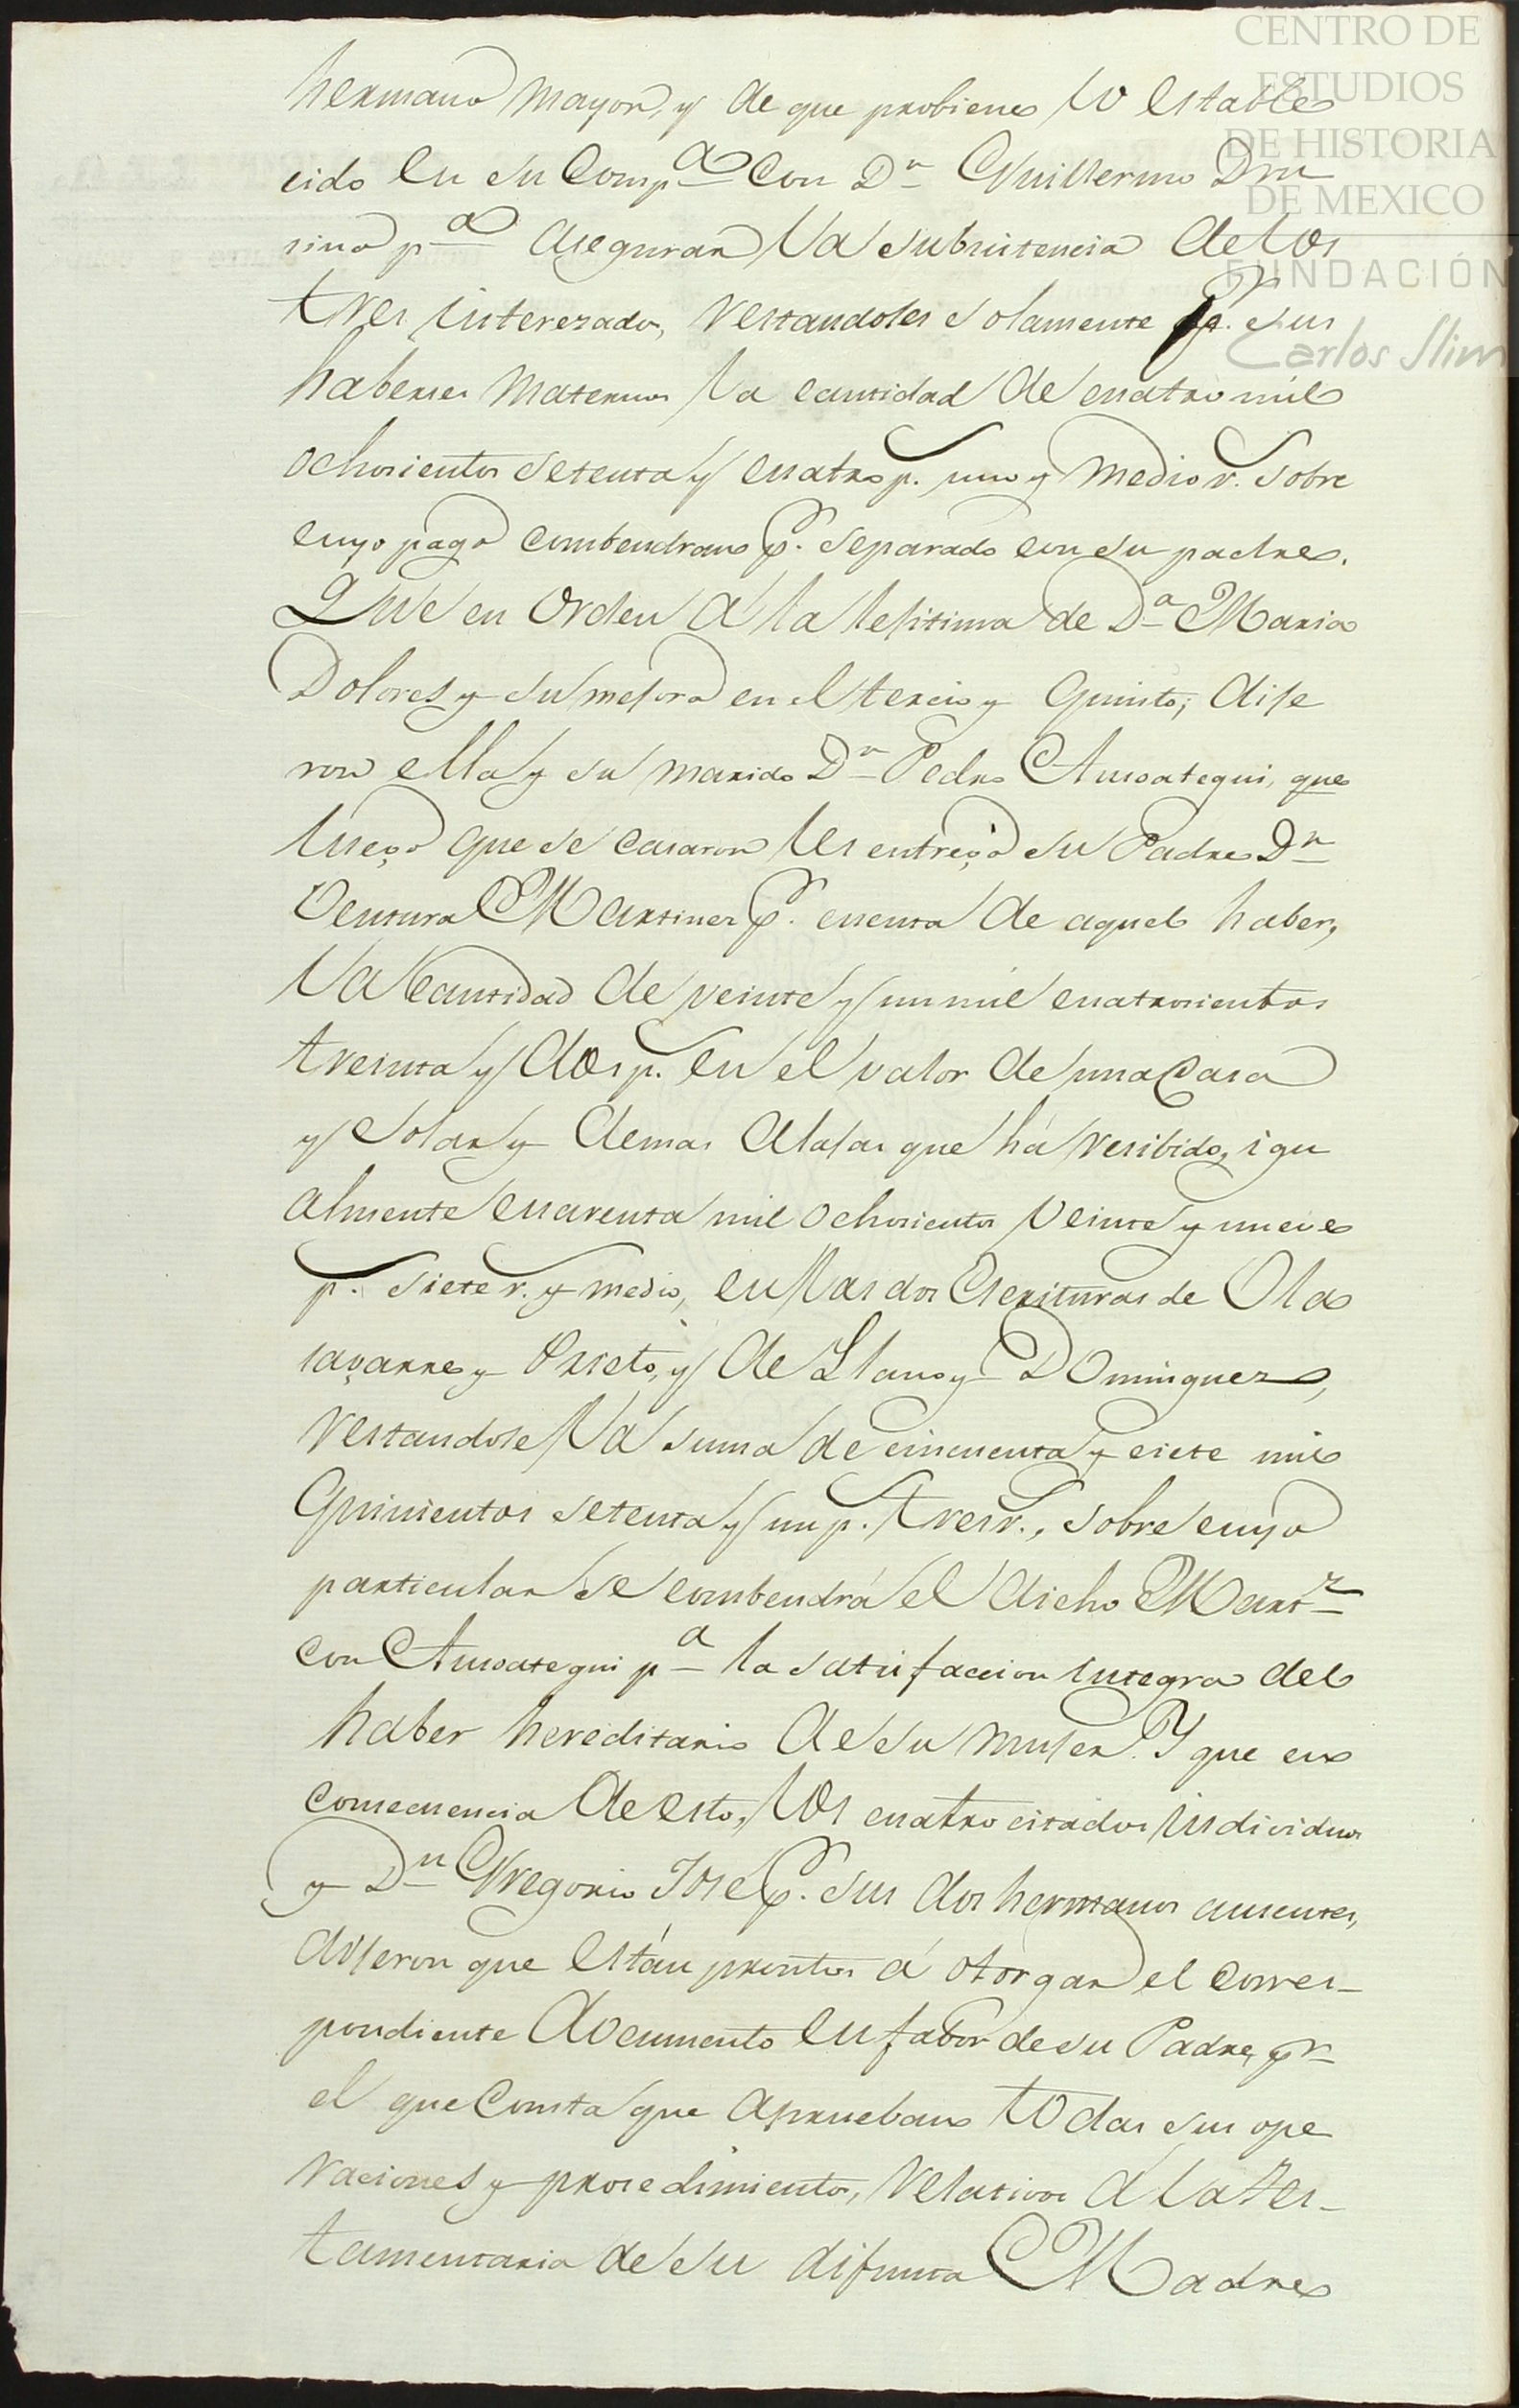 CENTRO DE
ESTUDIOS
DE HISTORIA
DE MEXICO
FUNDACIÓN
Carlos Slim
hermano mayor, y de que probiene lo estable
cido en su Comp.ª con D.n Guillermo Dru
sina p.ª asegurar la subsistencia de los
tres interezados, restandoles solamente p.r sus
haberes maternos la cantidad de cuatro mil
ochosientos setenta y cuatro p.s uno y medio r.s sobre
cuyo pago combendran p.r separado con su padre.
Que en orden á la lejitima de D.ª Maria
Dolores y su mejora en el tercio y quinto; dije
ron ella y su marido D.n Pedro Amoategui, que
luego que se casaron les entregó su Padre D.n
Ventura Martinez p.r cuenta de aquel haber,
la Cantidad de veinte y un mil cuatrosientos
treinta y dos p.s en el valor de una Casa
y solar y demas alajas que há resibido, igu
almente cuarenta mil ochosientos veinte y nueve
p.s siete r.s y medio, en las dos Escrituras de Ola
savarre y Prieto, y de Llano y Dominguez,
restandole la suma de cincuenta y siete mil
quinientos setenta y un p.s tres r.s, sobre cuyo
particular se combendrá el dicho Mart.z
con Amoategui p.ª la satisfaccion integra del
haber hereditario de su mujer. Y que en
consecuencia de esto, los cuatro citados individuos
y D.n Gregorio José p.r sus dos hermanos ausentes,
dijeron que están prontos á otorgar el corres-
pondiente documento en fabor de su Padre, p.r
el que Consta que aprueban todas sus ope
raciones y prosedimientos, relativos á la Tes-
tamentaria de su difunta Madre